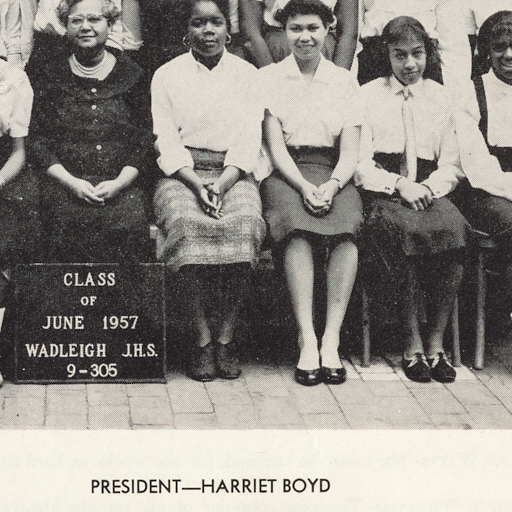 CLASS
OF
JUNE 1957
WADLEIGH J.H.S.
9-305
PRESIDENT—HARRIET BOYD